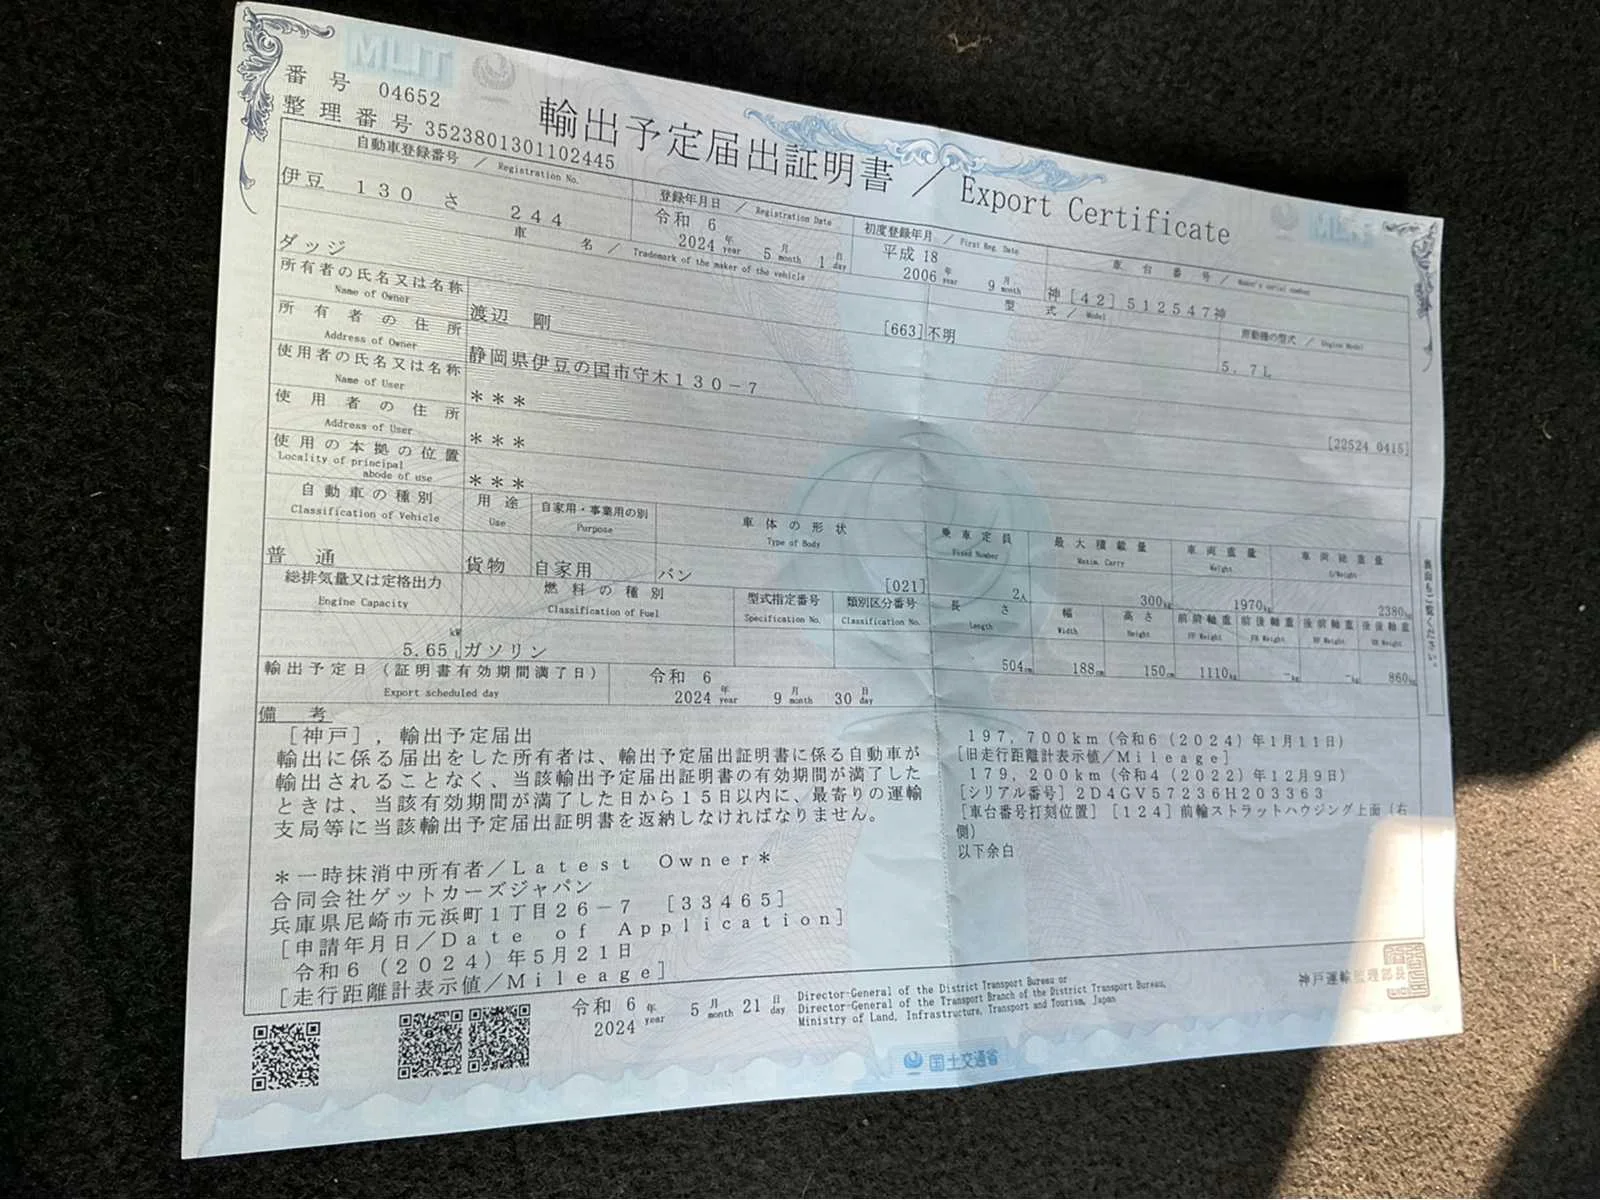 MLIT
番号 04652
輸出予定届出証明書 / Export Certificate
整理番号 352380130110​2445
自動車登録番号 / Registration No.
登録年月日 / Registration Date
初度登録年月 / First Reg. Date
車台番号 / Maker's serial number
伊豆 130 さ 244
令和 6
2024 年 year 5 月 month 1 日 day
平成 18
2006 年 year 9 月 month
神[42]512547神
車名 / Trademark of the maker of the vehicle
型式 / Model
原動機の型式 / Engine Model
ダッジ
[663]
不明
5.7L
所有者の氏名又は名称
Name of Owner
渡辺 剛
所有者の住所
Address of Owner
静岡県伊豆の国市守木130-7
[22524 0415]
使用者の氏名又は名称
Name of User
***
使用者の住所
Address of User
***
使用の本拠の位置
Locality of principal abode of use
***
自動車の種別
Classification of Vehicle
用途
Use
自家用・事業用の別
Purpose
車体の形状
Type of Body
乗車定員
Fixed Number
最大積載量
Maxim. Carry
車両重量
Weight
車両総重量
G/Weight
普通
貨物
自家用
バン
[021]
2人
300kg
1970kg
2380kg
総排気量又は定格出力
Engine Capacity
燃料の種別
Classification of Fuel
型式指定番号
Specification No.
類別区分番号
Classification No.
長さ
Length
幅
Width
高さ
Height
前前軸重
FF Weight
前後軸重
FR Weight
後前軸重
RF Weight
後後軸重
RR Weight
kW
5.65L
ガソリン
504cm
188cm
150cm
1110kg
-kg
-kg
860kg
輸出予定日(証明書有効期間満了日)
Export scheduled day
令和 6
2024 年 year 9 月 month 30 日 day
備考
[神戸],輸出予定届出
輸出に係る届出をした所有者は、輸出予定届出証明書に係る自動車が
輸出されることなく、当該輸出予定届出証明書の有効期間が満了した
ときは、当該有効期間が満了した日から15日以内に、最寄りの運輸
支局等に当該輸出予定届出証明書を返納しなければなりません。
*一時抹消中所有者/Latest Owner*
合同会社ゲットカーズジャパン
兵庫県尼崎市元浜町1丁目26-7 [33465]
[申請年月日/Date of Application]
令和6(2024)年5月21日
[走行距離計表示値/Mileage]
197,700km(令和6(2024)年1月11日)
[旧走行距離計表示値/Mileage]
179,200km(令和4(2022)年12月9日)
[シリアル番号]2D4GV57236H203363
[車台番号打刻位置][124]前輪ストラットハウジング上面(右
側)
以下余白
裏面もご覧ください。
令和 6 年 year 5 月 month 21 日 day
2024
Director-General of the District Transport Bureau or
Director-General of the Transport Branch of the District Transport Bureau,
Ministry of Land, Infrastructure, Transport and Tourism, Japan
神戸運輸監理部長
国土交通省